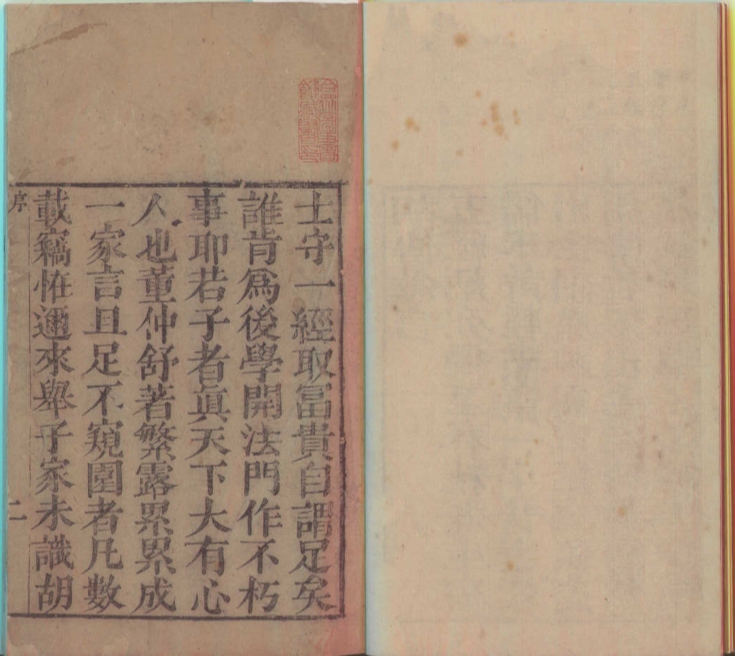 士守一經取富貴自謂足矣
誰肯爲後學開法門作不朽
事耶若子者眞天下大有心
人也董仲舒著繁露累累成
一家言且足不窺園者凡數
載竊怪邇來舉子家未識胡
序 二